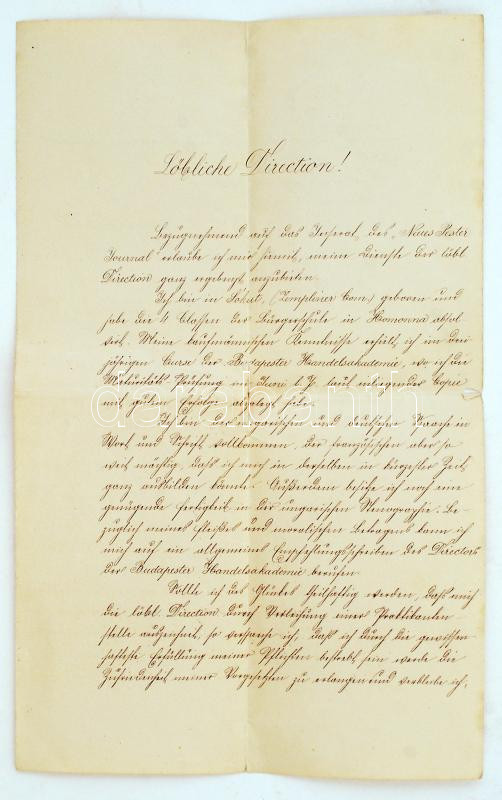 Löbliche Direction!
Bezugnehmend auf das Inserat des „Neues Pester
Journal" erlaube ich mir hiemit, meine Dienste der löbl
Direction ganz ergebenst anzubieten.
Ich bin in (Zempliner Com.) geboren und
habe die 4 Classen der Bürgerschule in Homonna absol
virt. Meine kaufmännischen Kenntnisse erhielt ich im drei
jährigen Curse der Budapester Handelsakademie, wo ich die
Maturitäts Prüfung im Juni l. J. laut inliegender Copie
mit gutem Erfolge abgelegt habe.
Ich bin der ungarischen und deutschen Sprache in
Wort und Schrift vollkommen, der französischen aber so
weit mächtig, daß ich mich in derselben in kürzester Zeit
ganz ausbilden könnte. Außerdem besitze ich noch eine
genügende Fertigkeit in der ungarischen Stenografie. Be-
züglich meines Fleißes und moralischen Betragens kann ich
mich auf ein allgemeines Empfehlungsschreiben des Directors
der Budapester Handelsakademie berufen.
Sollte ich des Glückes theilhaftig werden, daß mich
die löbl. Direction durch Verleihung einer Praktikanten
stelle auszeichnet, so verspreche ich, daß ich durch die gewissen
hafteste Erfüllung meiner Pflichten bestrebt sein werde die
Zufriedenheit meiner Vorgesetzten zu erlangen und verbleibe ich,
darabanth